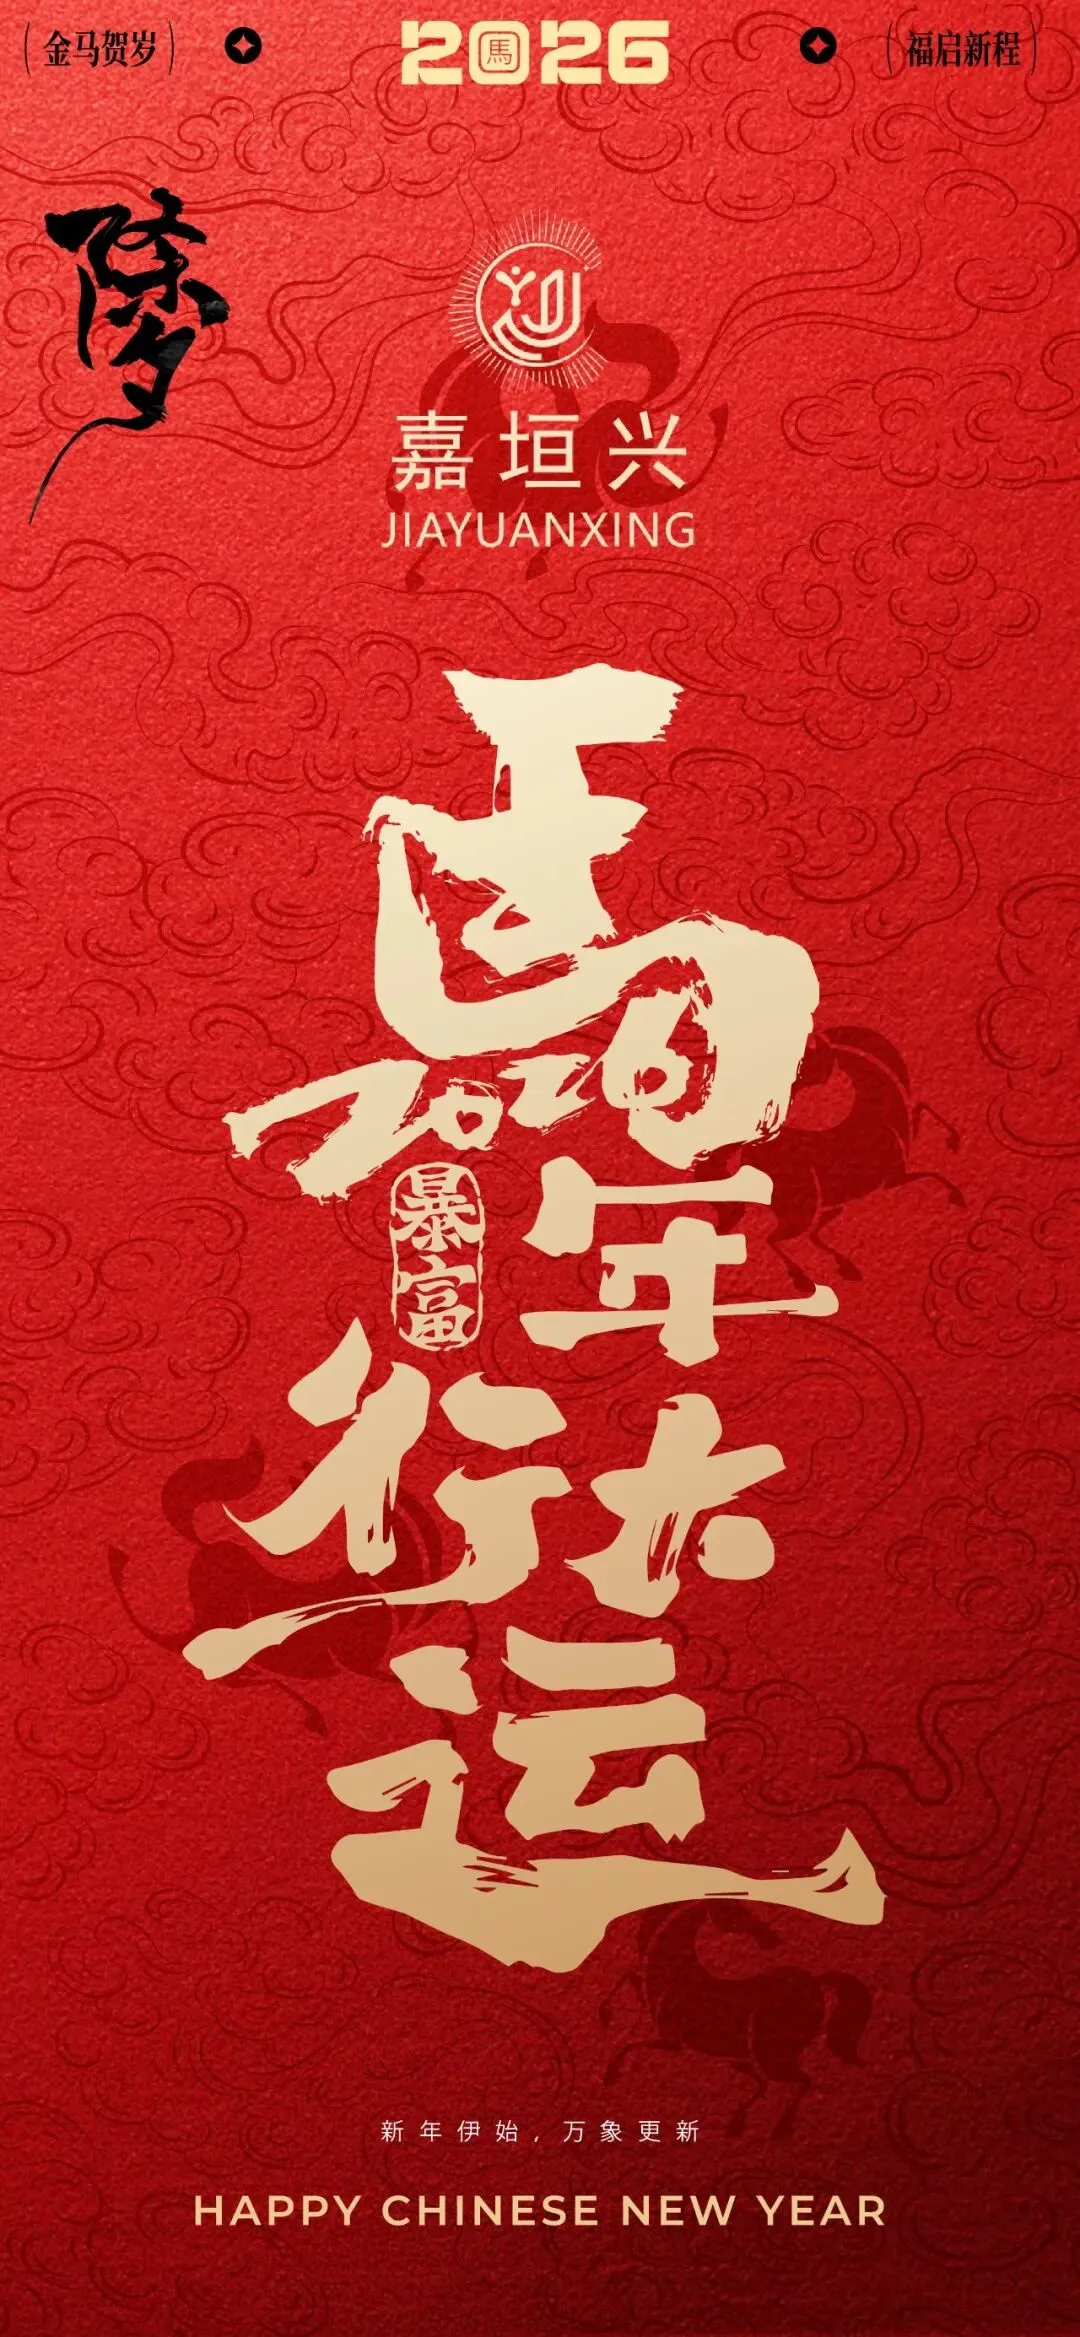 金马贺岁
2026
馬
福启新程
除夕
嘉垣兴
JIAYUANXING
馬年
2026
暴富
行大
运
新年伊始，万象更新
HAPPY CHINESE NEW YEAR